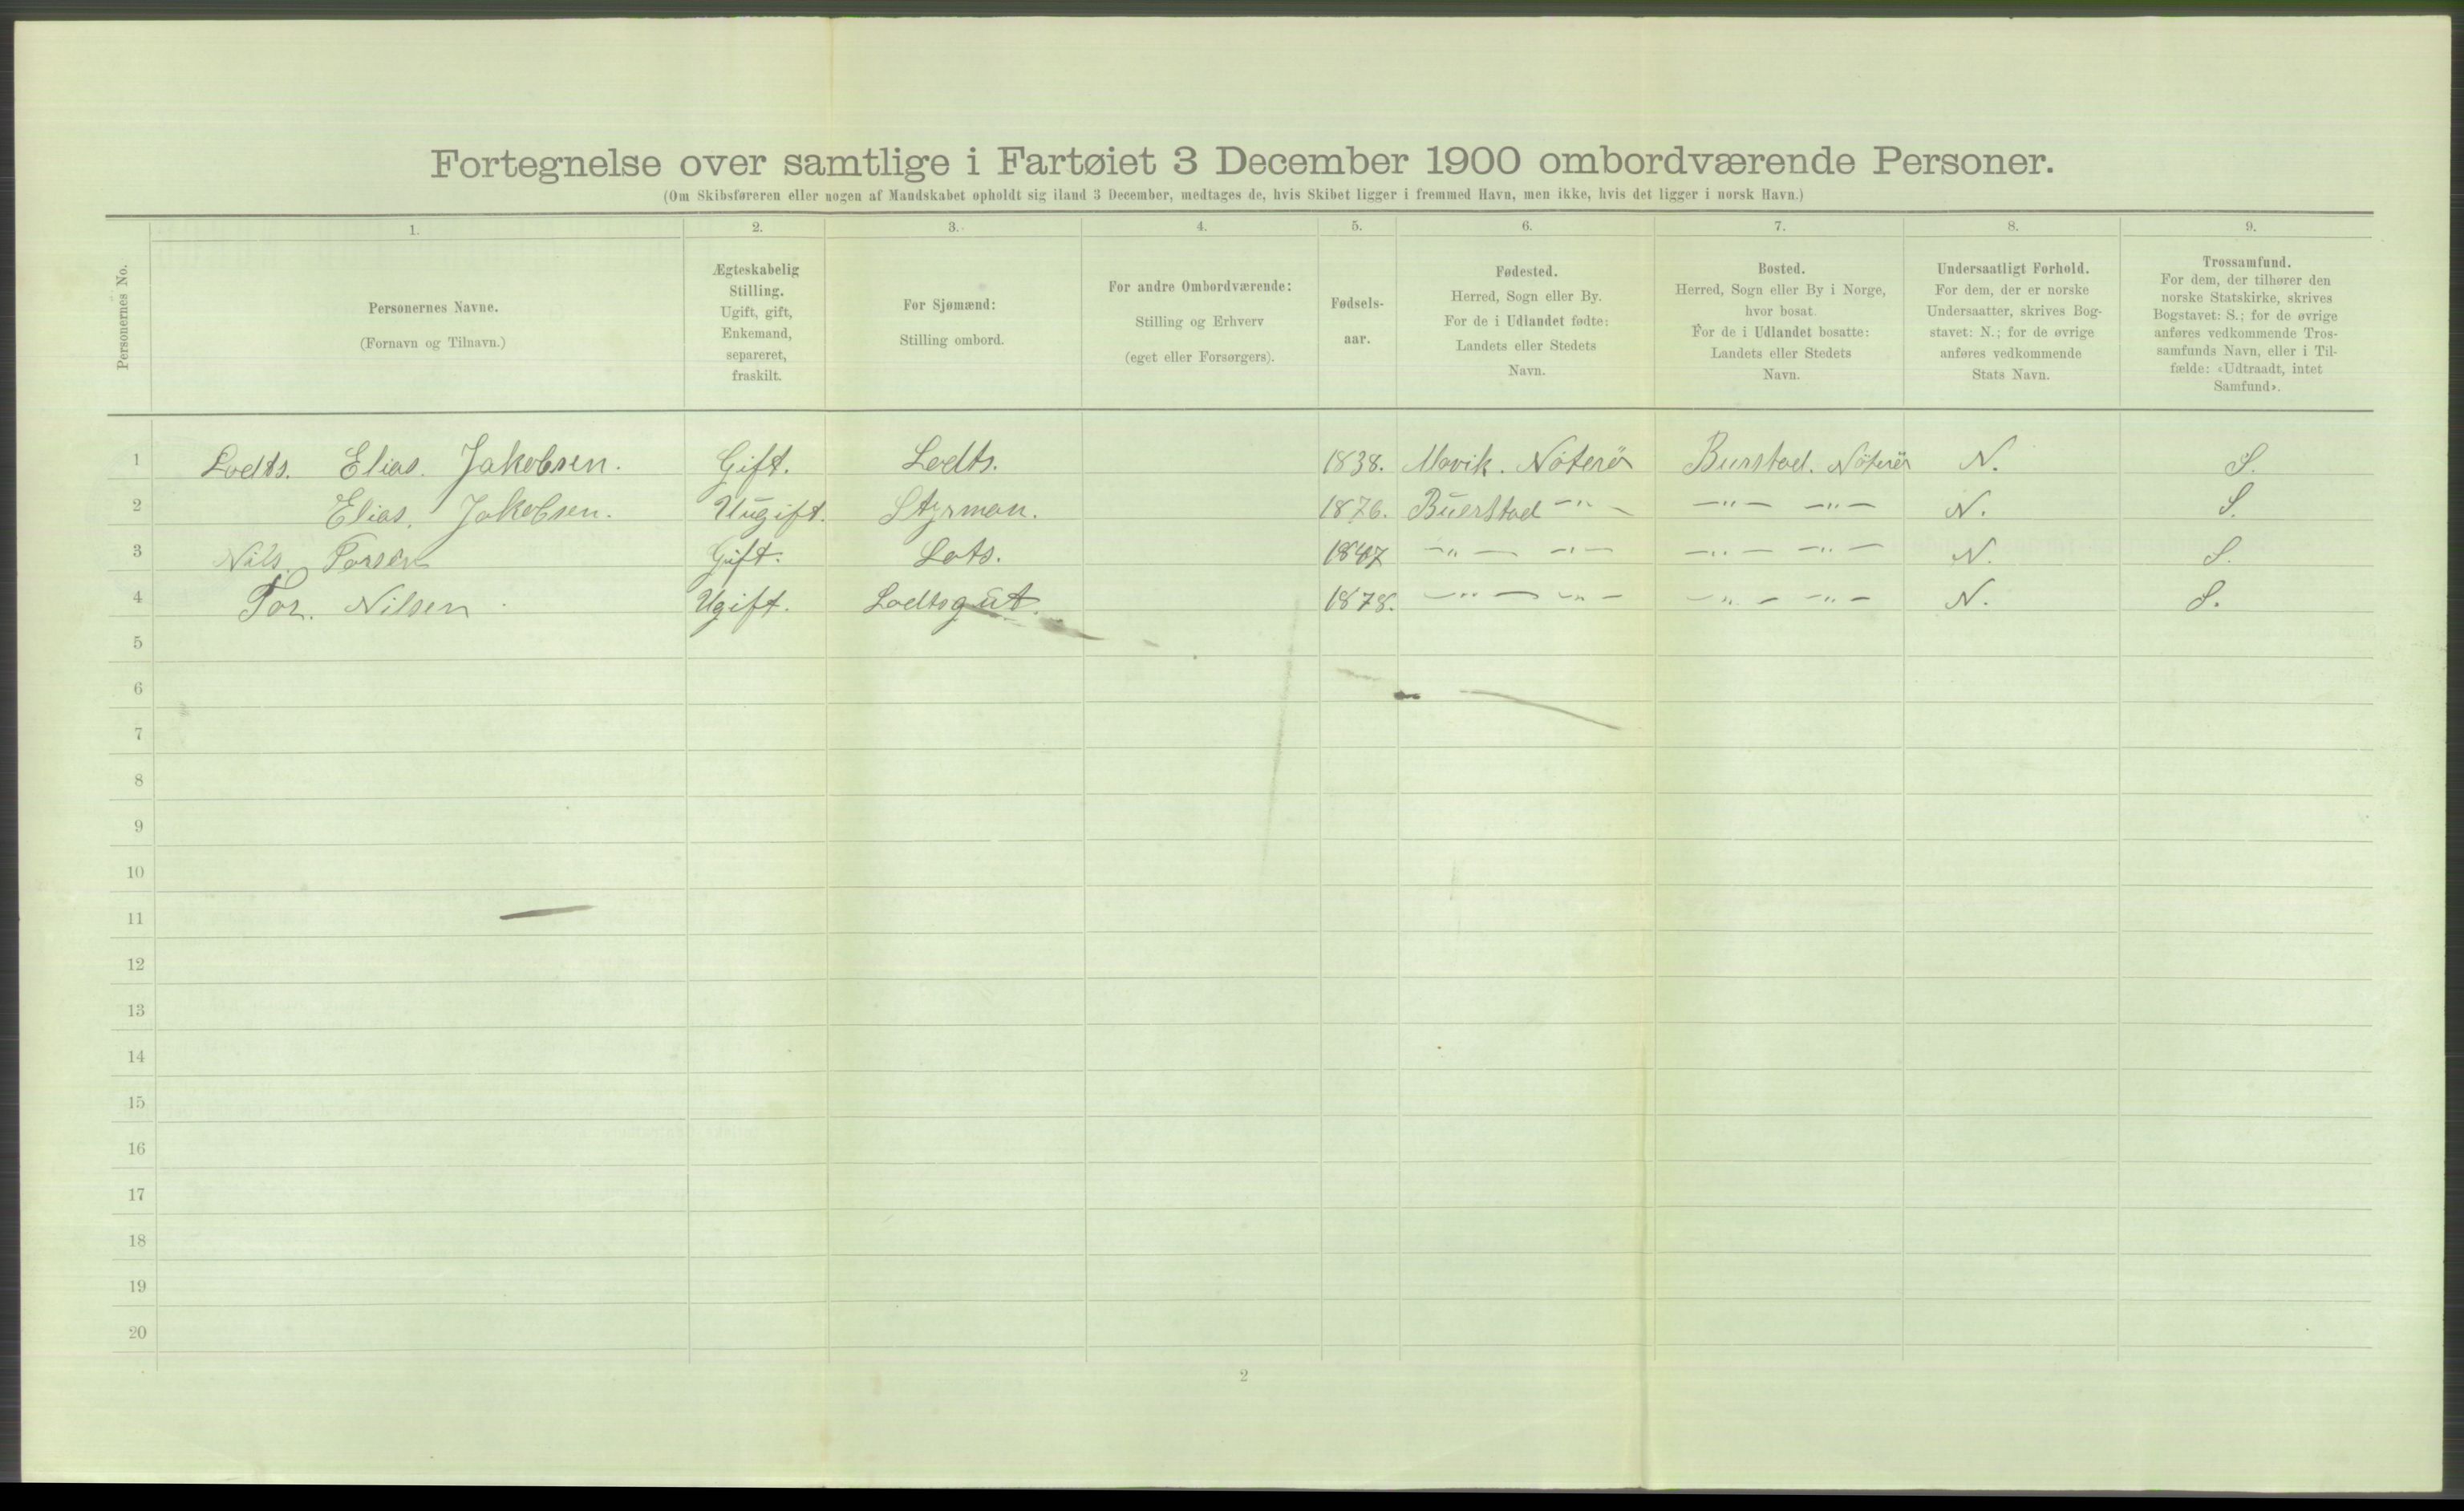 Fortegnelse over samtlige i Fartøiet 3 December 1900 ombordværende Personer.
(Om Skibsføreren eller nogen af Mandskabet opholdt sig iland 3 December, medtages de, hvis Skibet ligger i fremmed Havn, men ikke, hvis det ligger i norsk Havn.)
Personernes No.
1. 2. 3. 4. 5. 6. 7. 8. 9.
Personernes Navne.
(Fornavn og Tilnavn.)
Ægteskabelig
Stilling.
Ugift, gift,
Enkemand,
separeret,
fraskilt.
For Sjømænd:
Stilling ombord.
For andre Ombordværende:
Stilling og Erhverv
(eget eller Forsørgers).
Fødsels-
aar.
Fødested.
Herred, Sogn eller By.
For de i Udlandet fødte:
Landets eller Stedets
Navn.
Bosted.
Herred, Sogn eller By i Norge,
hvor bosat.
For de i Udlandet bosatte:
Landets eller Stedets
Navn.
Undersaatligt Forhold.
For dem, der er norske
Undersaatter, skrives Bog-
stavet: N.; for de øvrige
anføres vedkommende
Stats Navn.
Trossamfund.
For dem, der tilhører den
norske Statskirke, skrives
Bogstavet: S.; for de øvrige
anføres vedkommende Tros-
samfunds Navn, eller i Til-
fælde: «Udtraadt, intet
Samfund».
1 Lodts. Elias. Jakobsen. Gift. Lodts. 1838. Movik. Nöterör Burstad. Nöterör N. S.
2 Elias. Jakobsen. Uugift. Styrman. 1876. Buerstad -"- -"- -"- N. S.
3 Nils. Torsen Gift. Lots. 1847 -"- -"- -"- -"- N. S.
4 Tor. Nilsen Ugift. Lodtsgut. 1878. -"- -"- -"- -"- N. S.
5
6
7
8
9
10
11
12
13
14
15
16
17
18
19
20
2